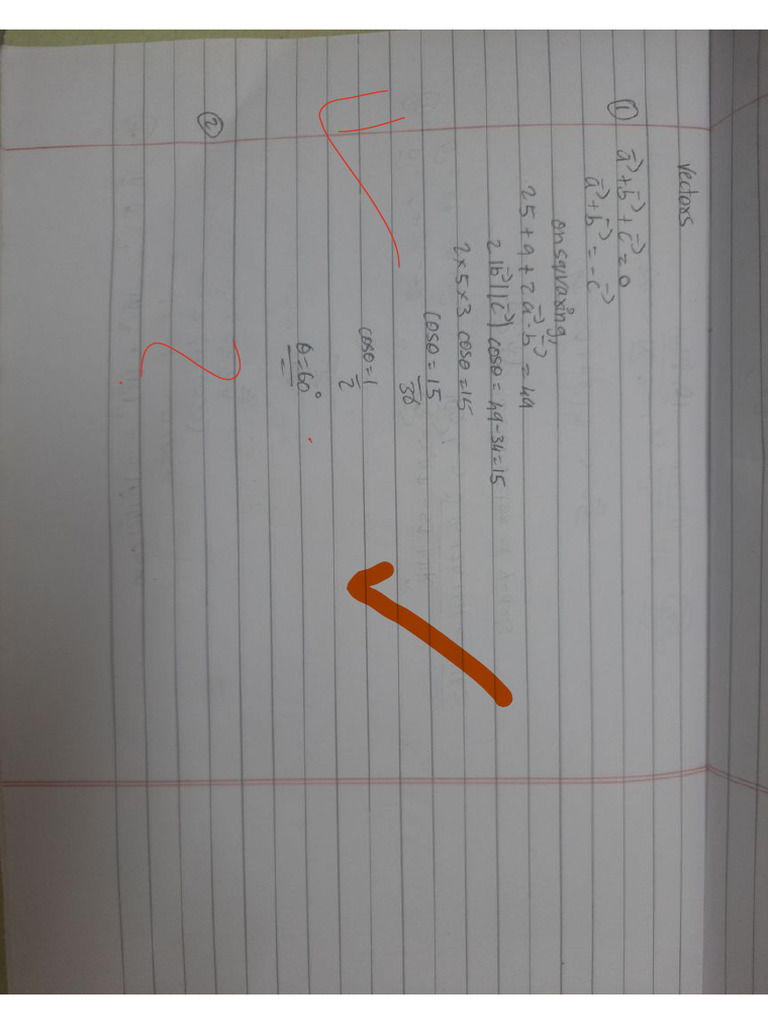 vectors
① a⃗ + b⃗ + c⃗ = 0
a⃗ + b⃗ = -c⃗
on squaring,
25 + 9 + 2a⃗·b⃗ = 49
2|b⃗||c⃗| cosθ = 49-34=15
2×5×3 cosθ = 15
cosθ = 15/30
cosθ = 1/2
θ = 60°
②